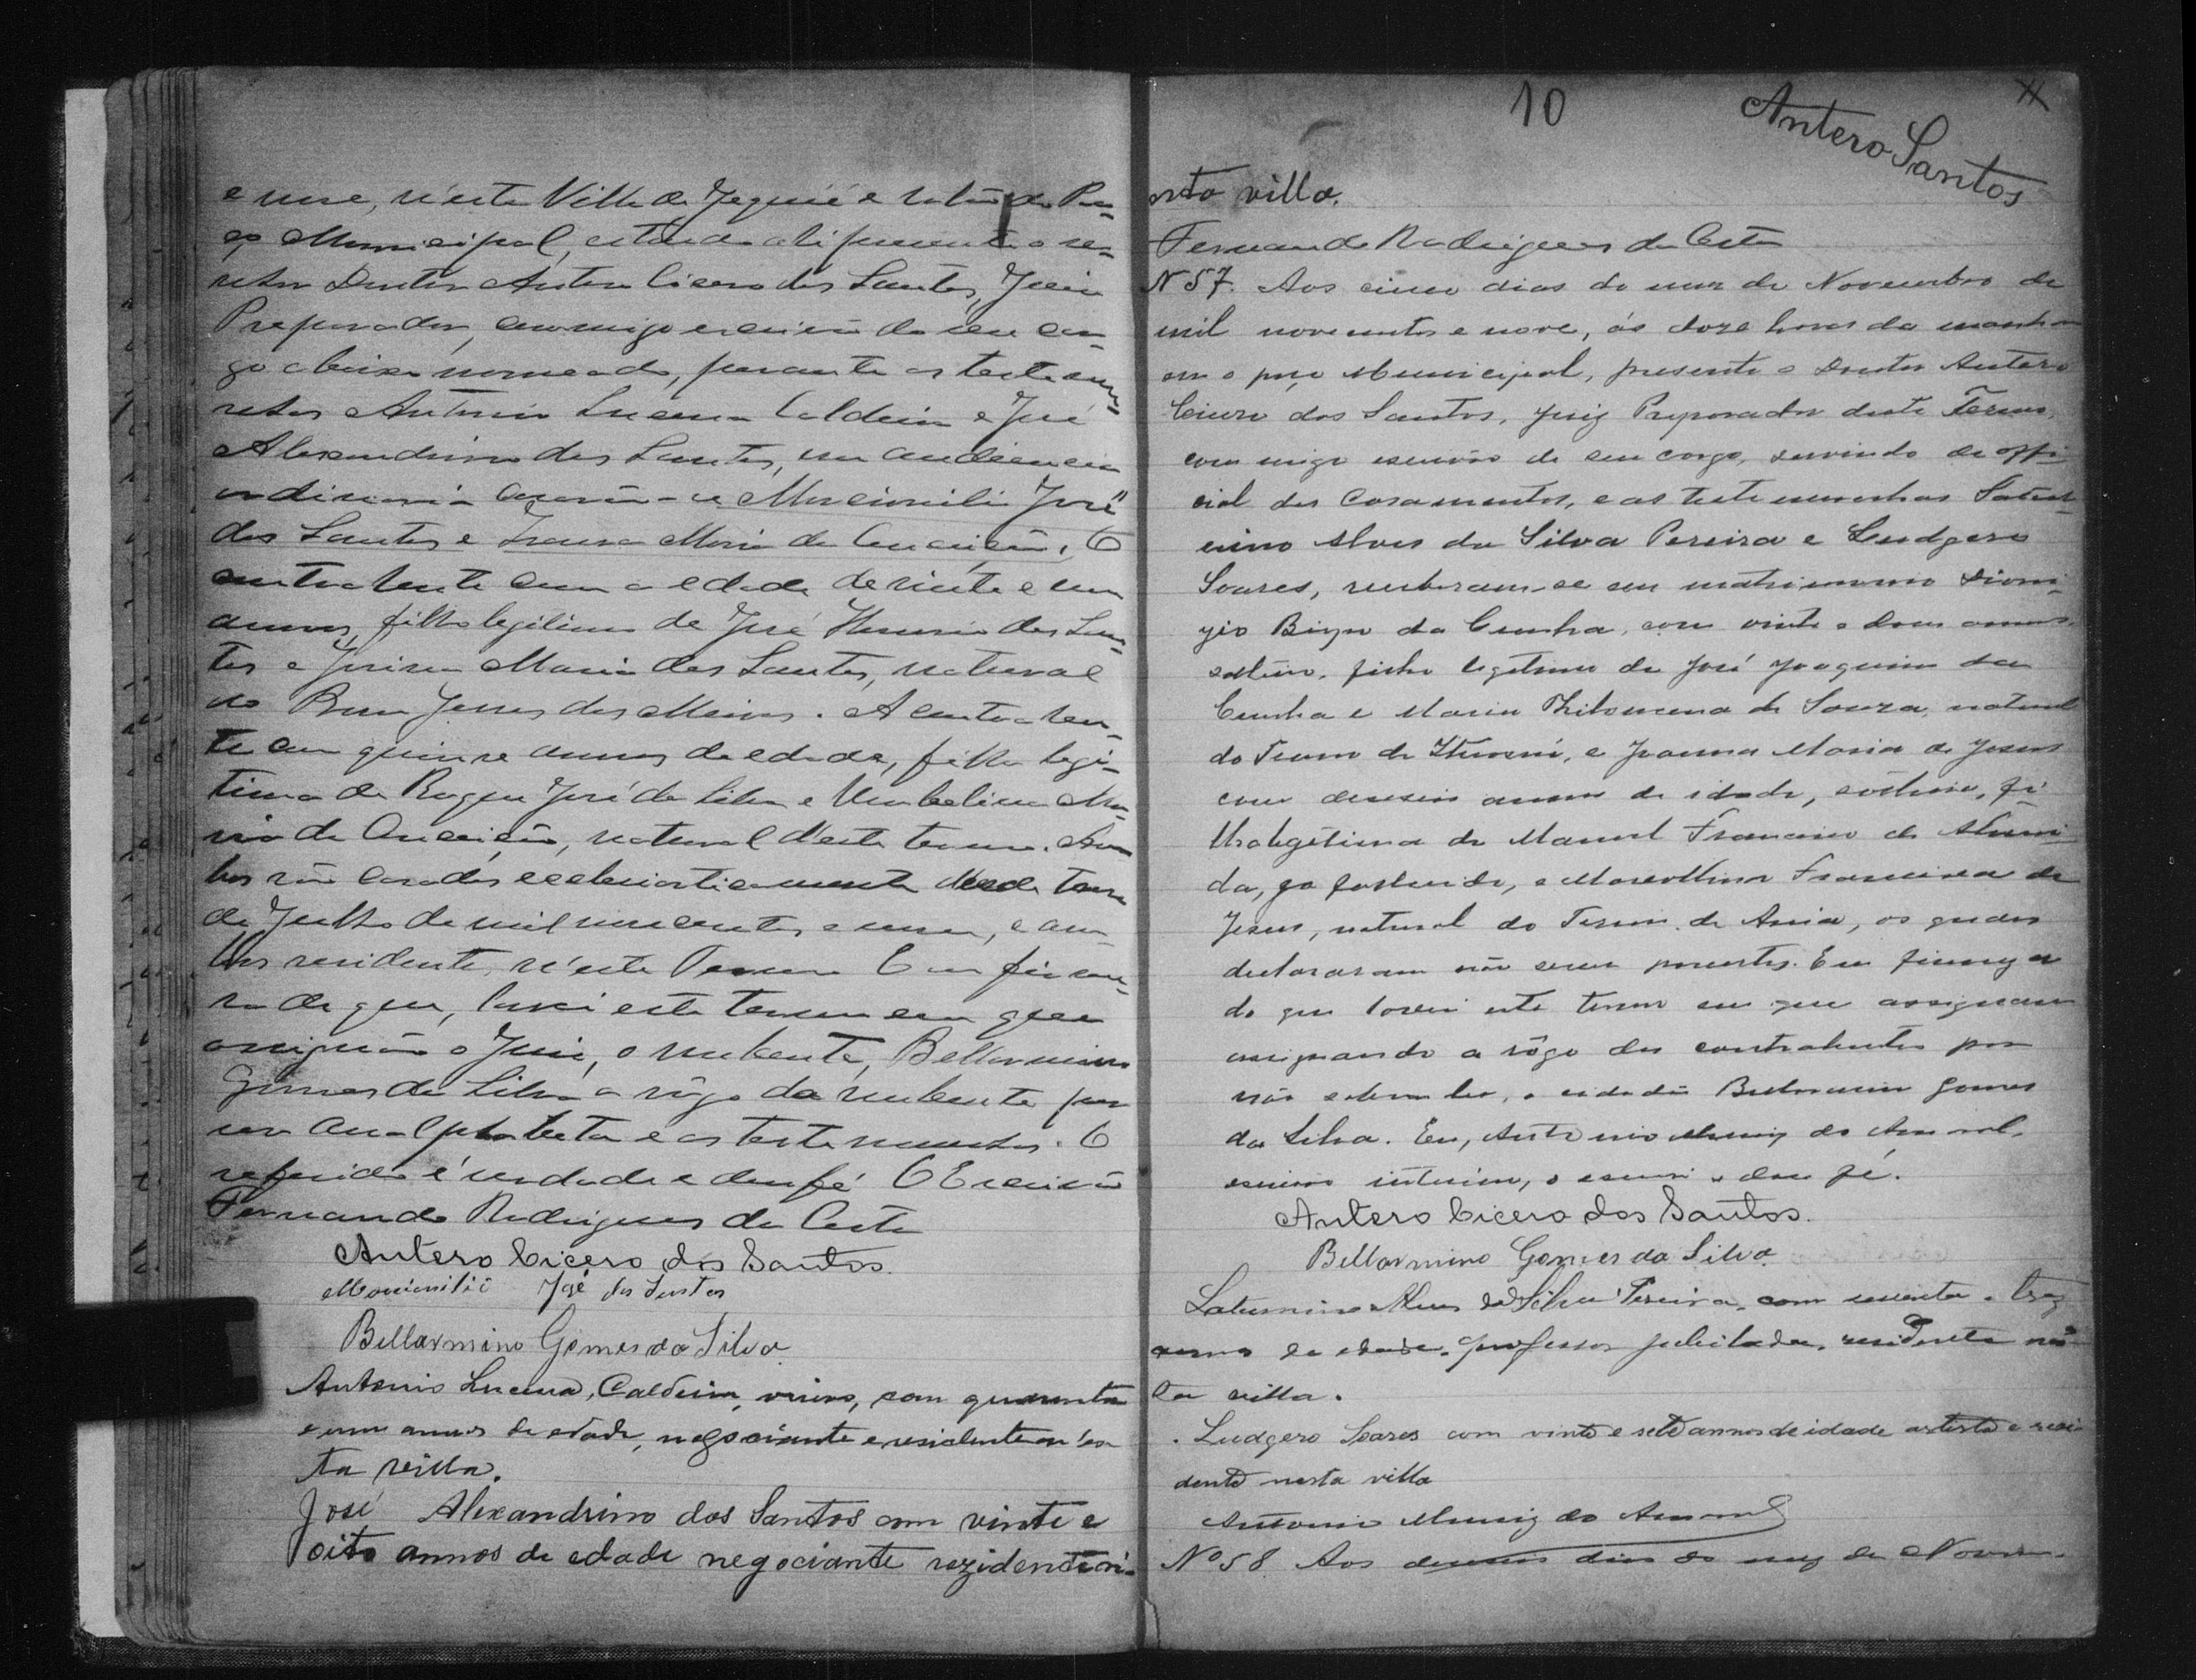 e nove, n'esta Villa de Jequié e salão do Pa-
ço Municipal, estando ahi presente o se-
nhor Doutor Antero Cicero dos Santos, Juiz
Preparador, commigo escrivão do seu car-
go abaixo nomeado, perante as testemu-
nhas Antonio Lucena Caldeira e José
Alexandrino dos Santos, em audiencia
ordinaria casarão-se Marcionilio José
dos Santos e Maria da Conceição, O
contractante com a edade de vinte e um
annos, filho legitimo de José dos San-
tos e Maria dos Santos, natural
do Bom Jesus dos Meiras. A contractan-
te com quinse annos de edade, filha legi-
tima de José da Silva e Umbelina Ma-
ria da Conceição, natural d'este termo. Am-
bos são casados ecclesiasticamente desde
de Julho de mil novecentos e nove, e am-
bos residentes n'este Termo. E em firme-
sa do que, lavrei este termo em que
assignão o Juiz, o nubente, Bellarmino
Gomes da Silva a rôgo da nubente por
ser analphabeta e as testemunhas. O
referido é verdade e dou fé O Escrivão
Fernando Rodrigues da Costa
Antero Cicero dos Santos.
Marcionilio José dos Santos
Bellarmino Gomes da Silva
Antonio Lucena Caldeira, viuvo, com quarenta
e um annos de edade, negociante e residente n'es
ta villa.
José Alexandrino dos Santos com vinte e
oito annos de edade negociante rezidente n'-
10
Antero Santos
esta villa.
Fernando Rodrigues da Costa
N 57. Aos cinco dias do mez de Novembro de
mil novecentos e nove, ás doze horas da manhã
em o paço Municipal, presente o Doutor Antero
Cicero dos Santos, Juiz Preparador deste Termo,
commigo escrivão de seu cargo, servindo de offi-
cial dos casamentos, e as testemunhas Satur-
nino Alves da Silva Pereira e Ludgero
Soares, receberam-se em matrimonio Dioni-
zio da Cunha, com vinte e dous annos,
solteiro, filho legitimo de José Joaquim da
Cunha e Maria Philomena de Souza, natural
do Termo de Ituassú, e Joanna Maria de Jesus
com deseseis annos de idade, solteira, fi-
lha legitima de Manoel Francisco de Almei-
da, ja fallecido, e Marcellina Francisca de
Jesus, natural do Termo de Areia, os quaes
declararam não serem parentes. Em firmeza
do que lavrei este termo em que assignam
assignando a rôgo dos contrahentes por
não saberem ler, o cidadão Bellarmino Gomes
da Silva. Eu, Antonio Muniz do Amaral,
escrivão interino, o escrevi e dou fé.
Antero Cicero dos Santos.
Bellarmino Gomes da Silva.
Saturnino Alves da Silva Pereira, com sessenta e trez
annos de edade, professor jubilado, residente nes
ta villa.
Ludgero Soares com vinte e sete annos de idade artista e resi
dente nesta villa
Antonio Muniz do Amaral
Nº 58 Aos dias do mez de Novem-